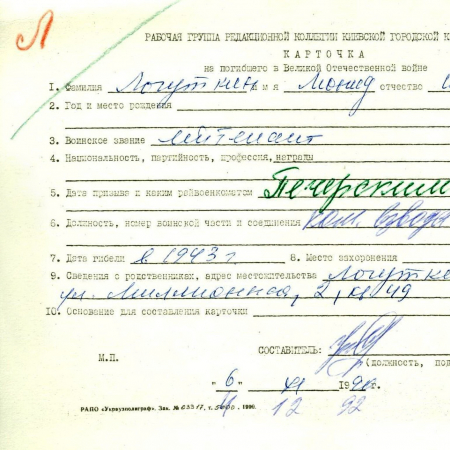 Л
РАБОЧАЯ ГРУППА РЕДАКЦИОННОЙ КОЛЛЕГИИ КИЕВСКОЙ ГОРОДСКОЙ К
КАРТОЧКА
на погибшего в Великой Отечественной войне
1. Фамилия Логуткин Имя Леонид отчество
2. Год и место рождения
3. Воинское звание лейтенант
4. Национальность, партийность, профессия, награды
5. Дата призыва и каким райвоенкоматом Печерским
6. Должность, номер воинской части и соединения ком. взвода
7. Дата гибели в 1943 г 8. Место захоронения
9. Сведения о родственниках, адрес местожительства Логутк
ул. Миллионная, 2, кв 49
10. Основание для составления карточки
СОСТАВИТЕЛЬ:
М.П. (должность, под
"6" XI 199 г.
4 12 92
РАПО «Укрвузполиграф». Зак. № 03317, т. 5000. 1990.